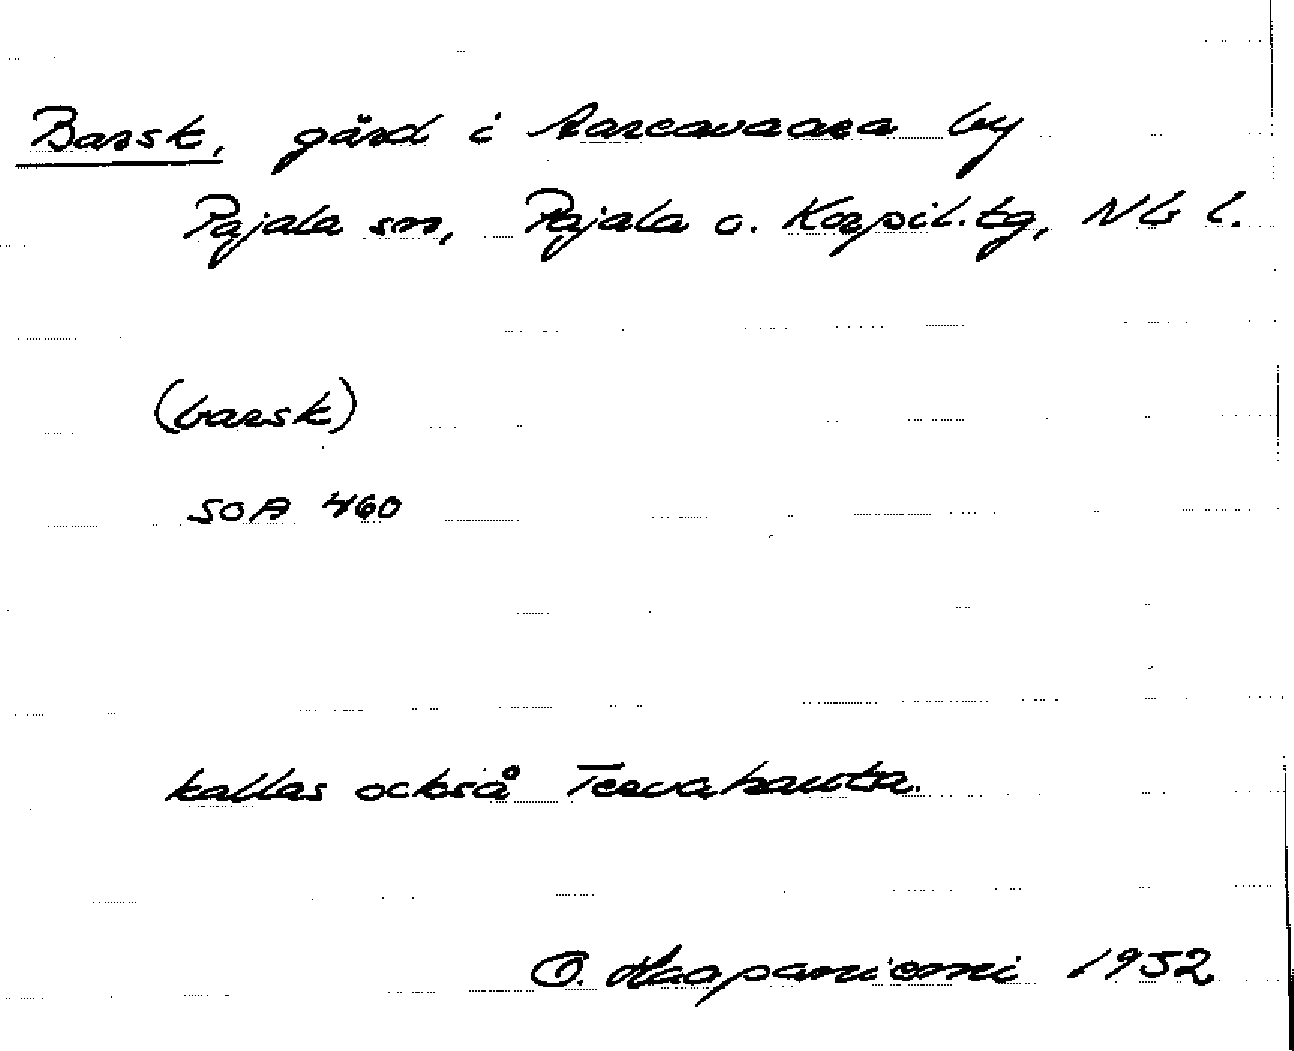 Barsk, gård i Aareavaara by
Pajala sn, Pajala o. Korpil. tg, Nb l.
(barsk)
SOA 460
kallas också Tervahauta.
O. Haapaniemi 1952